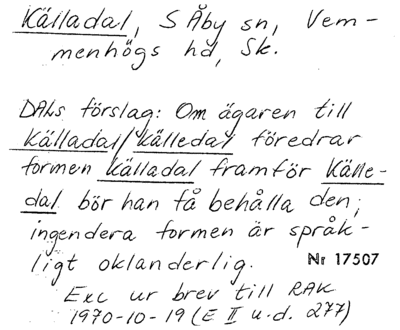 Källadal, S Åby sn, Vem-
menhögs hd, Sk.
DALs förslag: Om ägaren till
Källadal/Källedal föredrar
formen Källadal framför Källe-
dal bör han få behålla den;
ingendera formen är språk-
ligt oklanderlig. Nr 17507
Exc ur brev till RAK
1970-10-19 (E II u.d. 277)